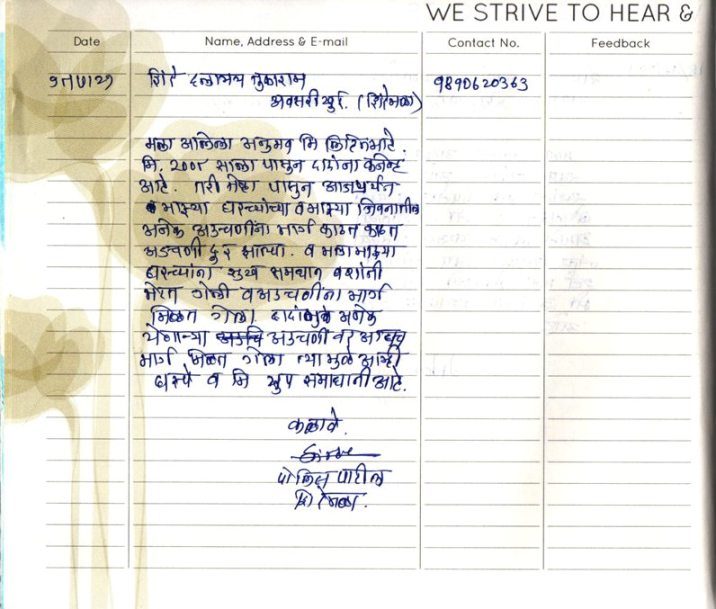 WE STRIVE TO HEAR &
Date Name, Address & E-mail Contact No. Feedback
शिंदे दत्तात्रय तुकाराम 9890620363
अवसरी खुर्द. (शिंदेमळा)
मला आलेला अनुभव मि लिहितआहे.
मि. 2008 साला पासुन दादांना कनेक्ट
आहे. तरी तेव्हा पासुन आजपर्यंत
माझ्या घरच्यांच्या व माझ्या जिवनातील
अनेक अडचणींना मार्ग काढत काढत
अडचणी दुर झाल्या. व मला माझ्या
घरच्यांना सुख समाधान व शांती
भेटत गेली व अडचणींना मार्ग
मिळत गेला. दादांमुळे अनेक
येणाऱ्या अडचणींवर
मार्ग मिळत गेला त्या मुळे आम्ही
घरचे व मि खुप समाधानी आहे.
कळावे.
पोलिस पाटील
शिंदेमळा.